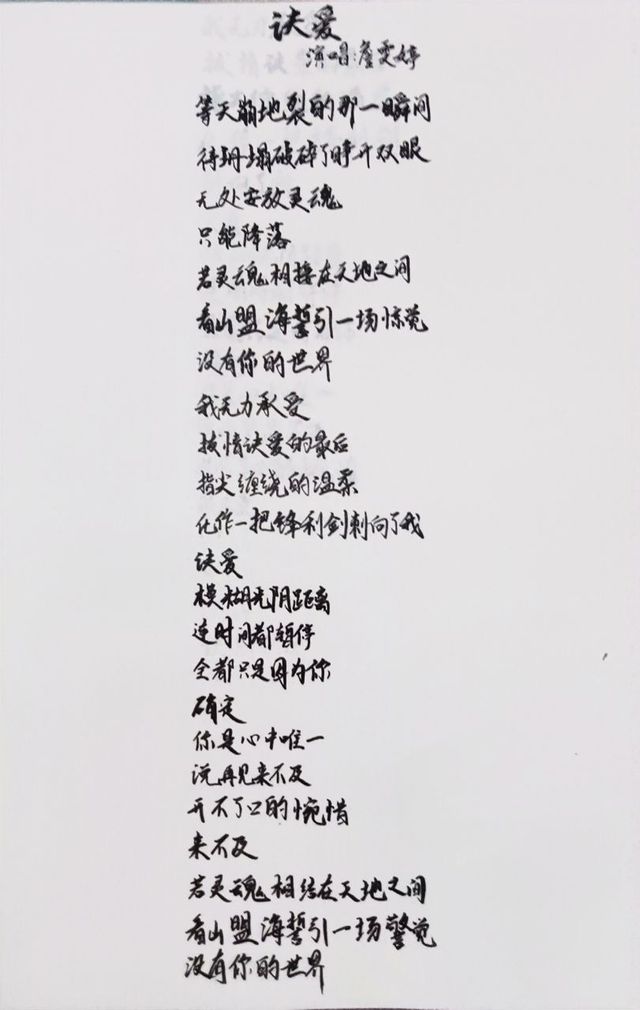 诀爱
演唱:詹雯婷
等天崩地裂的那一瞬间
待坍塌破碎了睁开双眼
无处安放灵魂
只能降落
若灵魂相接在天地之间
看山盟海誓引一场惊觉
没有你的世界
我无力承受
拔情诀爱的最后
指尖缠绕的温柔
化作一把锋利剑刺向了我
诀爱
模糊光阴距离
连时间都暂停
全都只是因为你
确定
你是心中唯一
说再见来不及
开不了口的惋惜
来不及
若灵魂相结在天地之间
看山盟海誓引一场警觉
没有你的世界